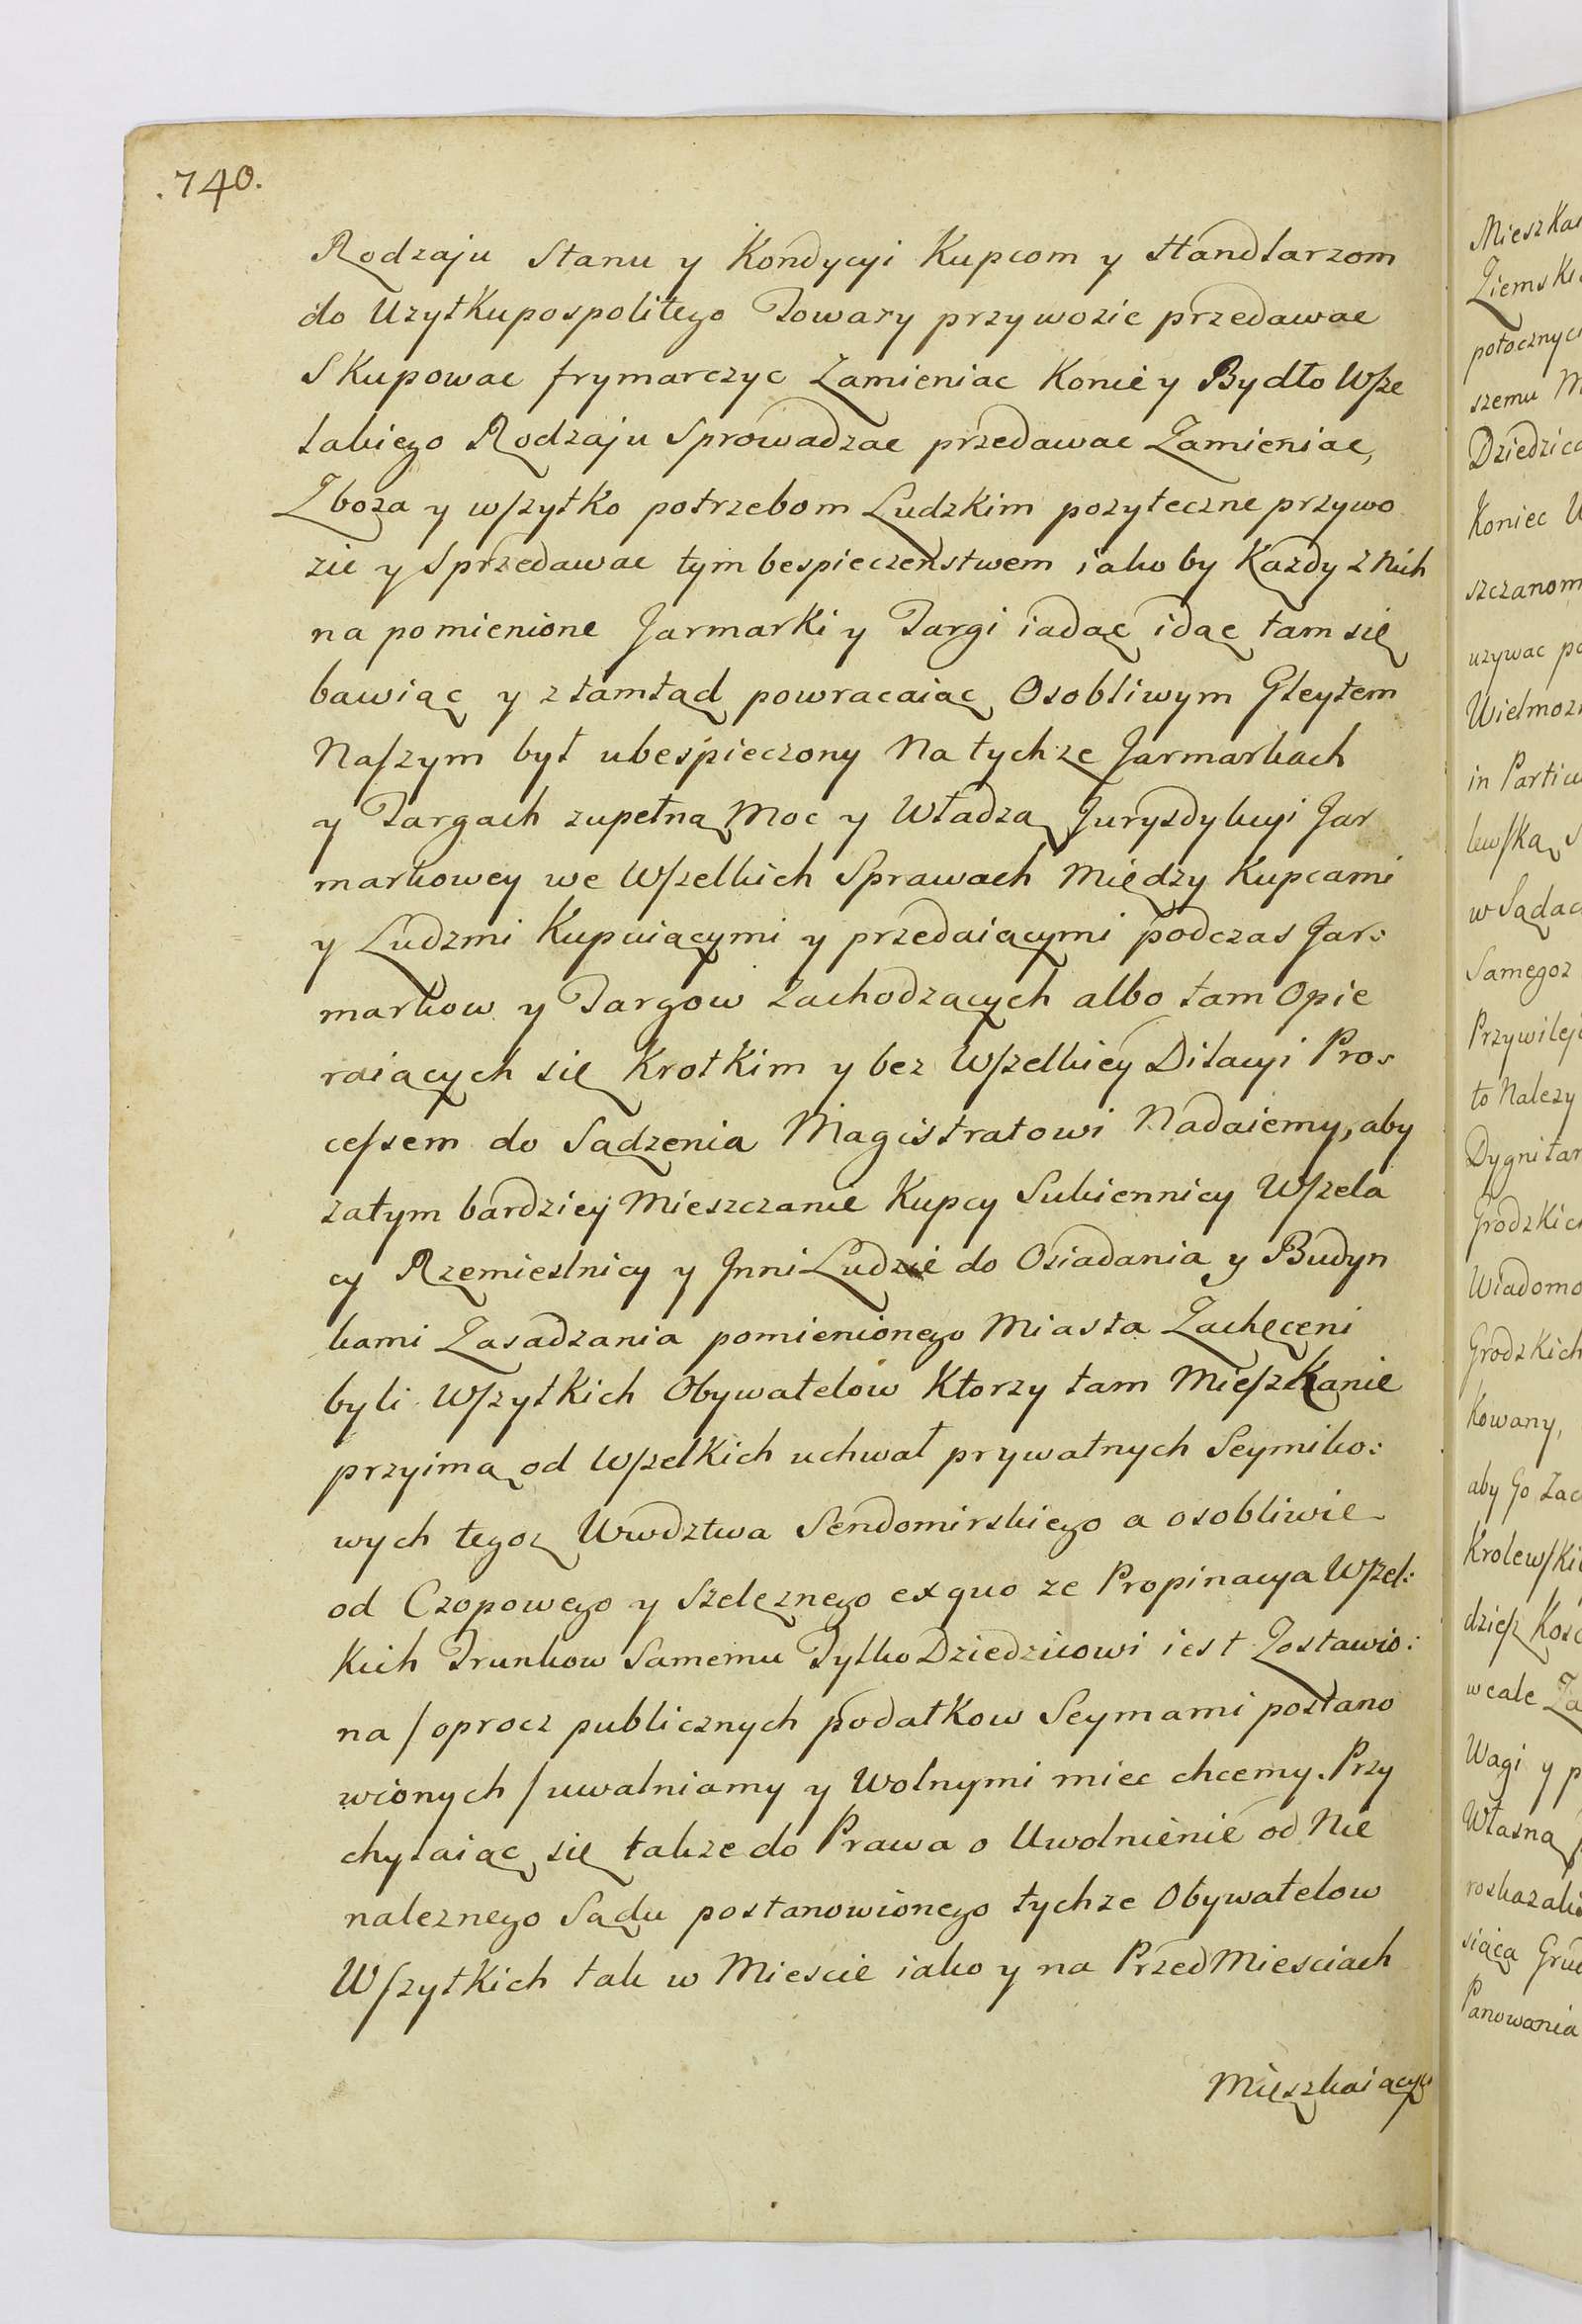 .740.
Rodzaju Stanu y Kondycyi Kupcom y Handlarzom
do Uzytkupospolitego Towary przywozic przedawac
Skupowac frymarczyc Zamieniac Konie y Bydło Wsze
lakiego Rodzaju Sprowadzac przedawac Zamieniac,
Zboza y wszytko potrzebom Ludzkim pozyteczne przywo
zic y Sprzedawac tym bespieczenstwem iako by Kazdy z Nich
na pomienione Jarmarki y Targi iadąc idąc tam się
bawiąc y ztamtąd powracaiąc Osobliwym Gleytem
Naszym był ubespieczony Na tychze Jarmarkach
y Targach zupełną Moc y Władzą Jurysdykcyi Jar
markowey we Wszelkich Sprawach Między Kupcami
y Ludzmi Kupuiącymi y przedaiącymi podczas Jar:
markow y Targow Zachodzących albo tam Opie
raiących się Krotkim y bez Wszelkiey Dilacyi Pros
cessem do Sądzenia Magistratowi Nadaiemy, aby
zatym bardziey Mieszczanie Kupcy Sukiennicy Wszela
cy Rzemieslnicy y Inni Ludzie do Osiadania y Budyn
kami Zasadzania pomienionego Miasta Zachęceni
byli Wszytkich Obywatelow Ktorzy tam Mieszkanie
przyimą od Wszelkich uchwał prywatnych Seymiko:
wych tegoz Wwdztwa Sendomirskiego a osobliwie
od Czopowego y Szelęznego exquo ze Propinacya Wszel:
kich Trunkow Samemu Tylko Dziedzicowi iest Zostawio:
na / oprocz publicznych podatkow Seymami postano
wionych / uwalniamy y Wolnymi miec chcemy. Przy
chylaiąc się takze do Prawa o Uwolnienie od Nie
naleznego Sądu postanowionego tychze Obywatelow
Wszytkich tak w Miescie iako y na PrzedMiesciach
Mieszkaiących
Mieszkan
Ziemski
potocznyc
szemu M
Dziedzico
Koniec W
szczanom
uzywac po
Wielmozn
in Particu
lewską S
w Sądac
Samegoz
Przywilej
to Nalezy
Dygnitar
Grodzkich
Wiadomo
Grodzkich
Kowany,
aby Go Zac
Krolewski
dziesz Kosc
wcale Za
Wagi y p
Własną
roskazali
siąca Grud
Panowania